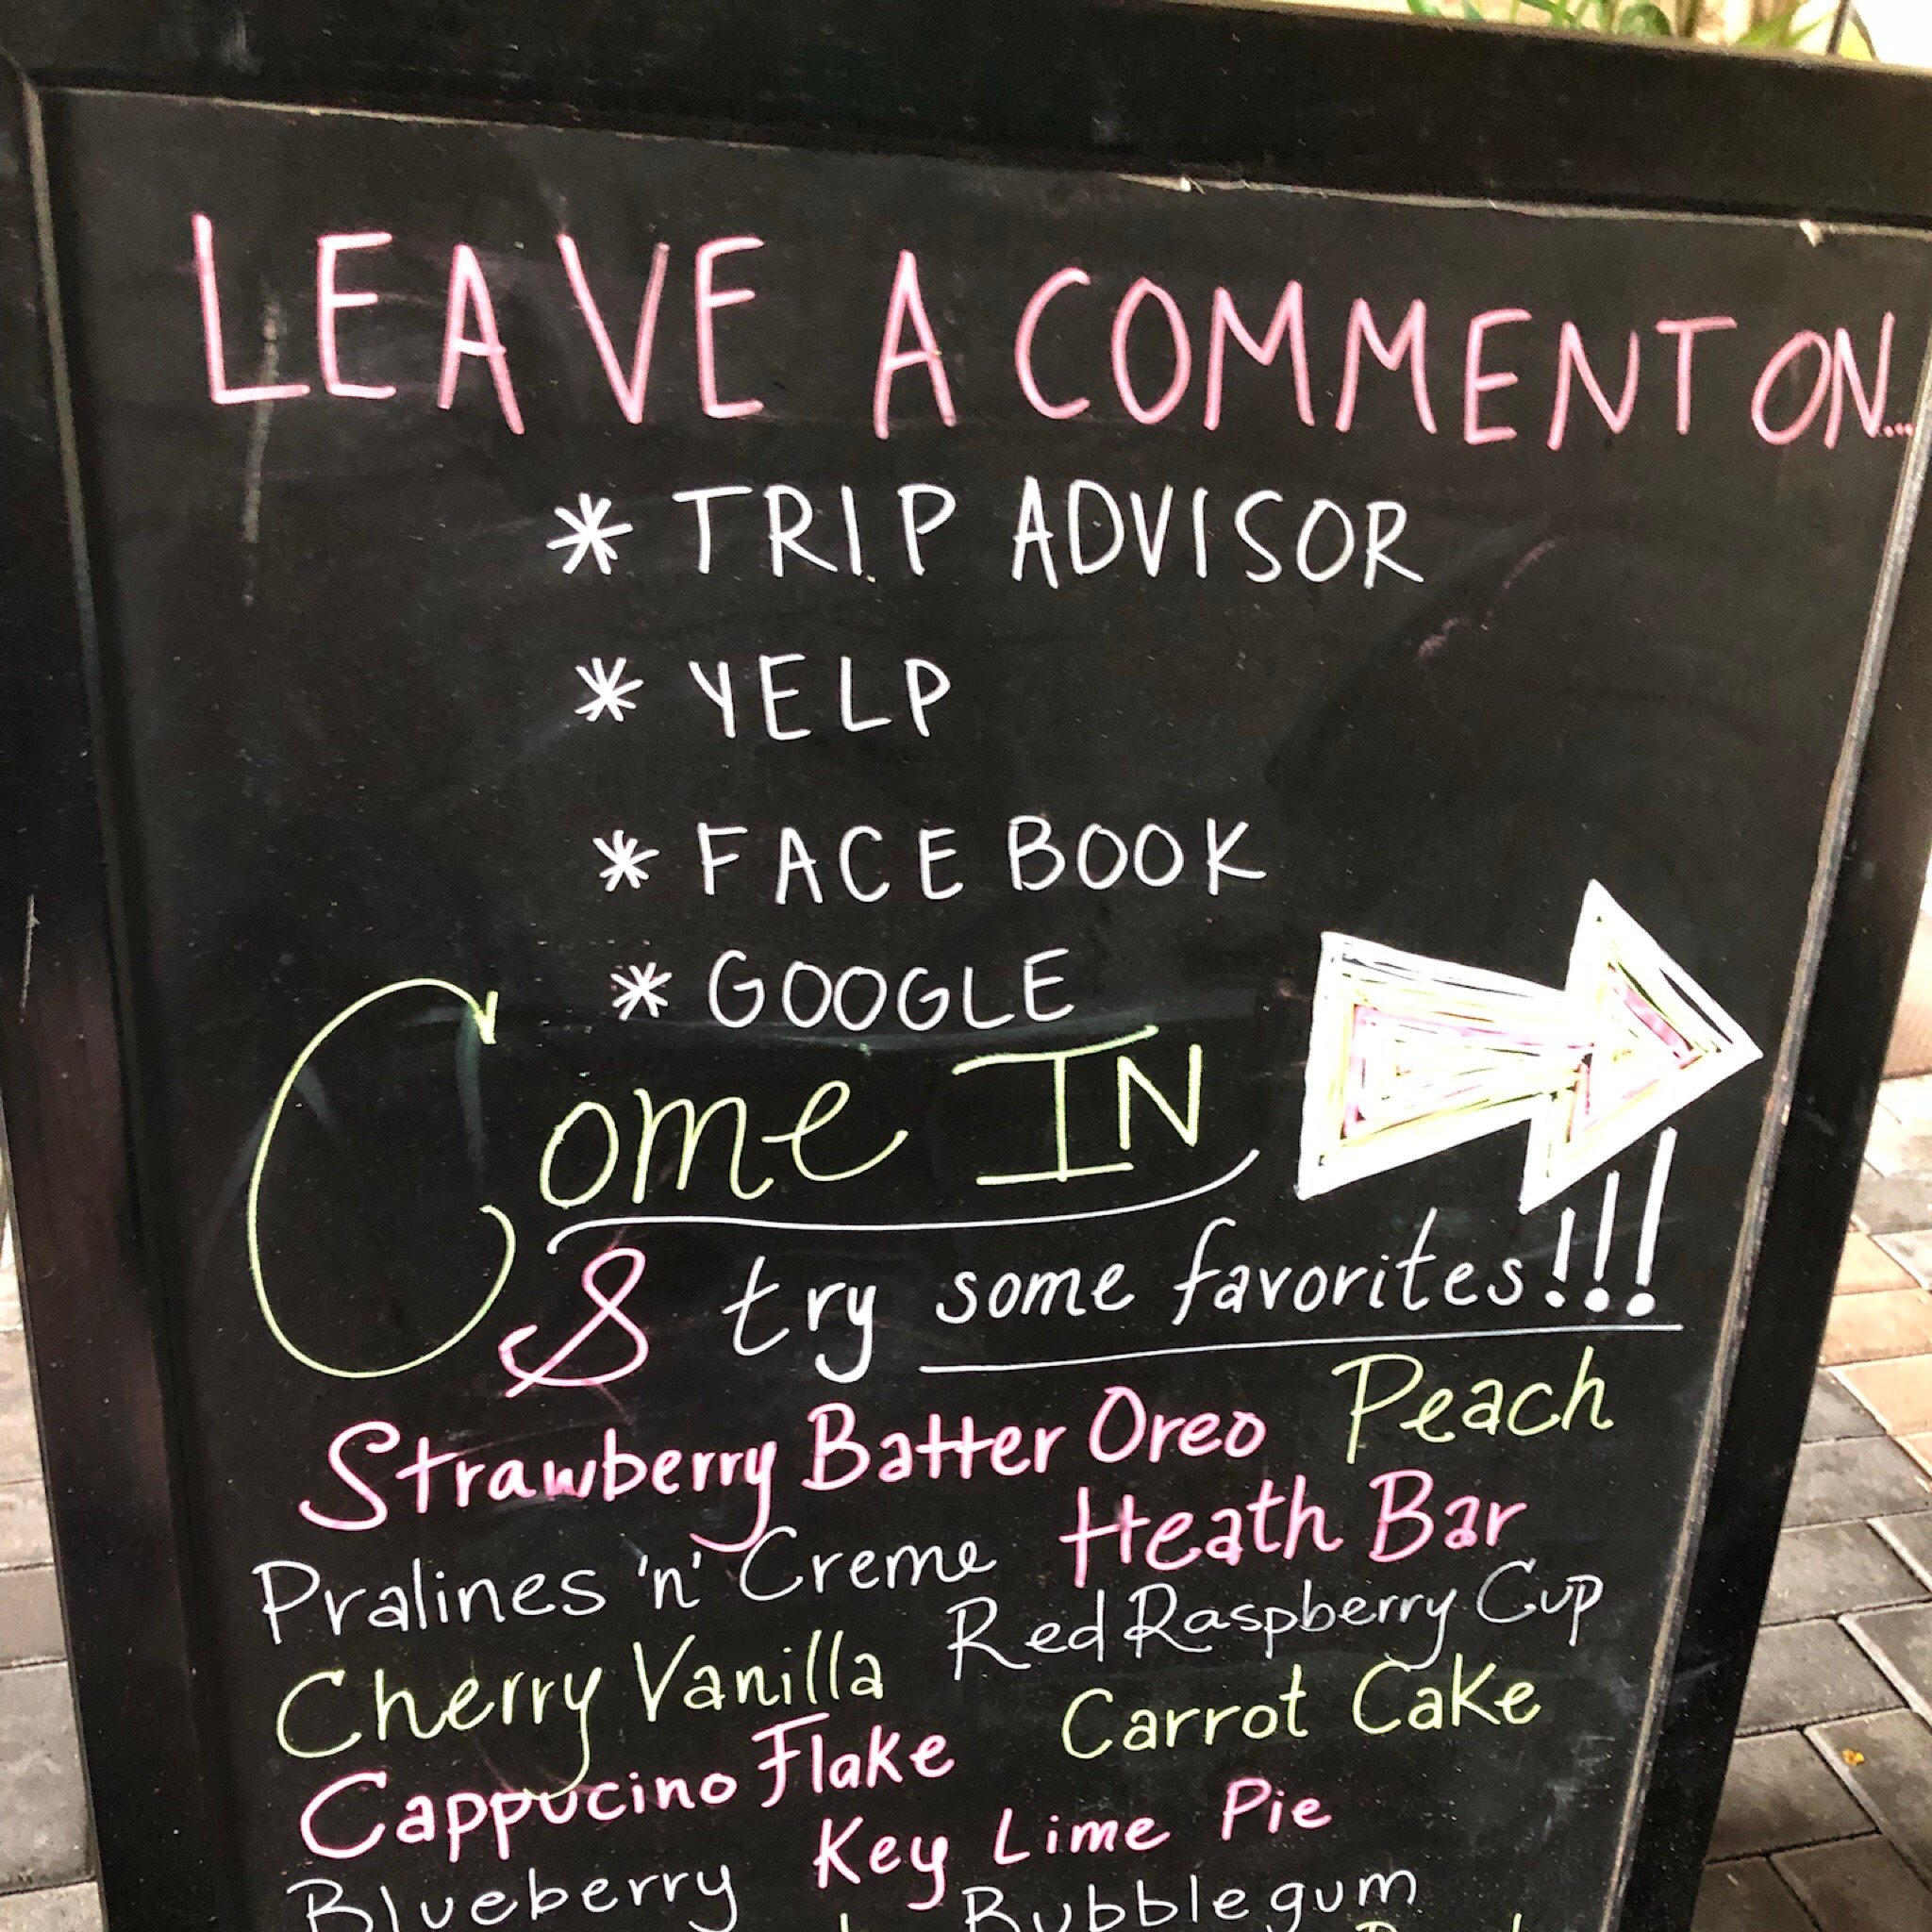 LEAVE A COMMENT ON...
* TRIP ADVISOR
* YELP
* FACEBOOK
* GOOGLE
Come IN
& try some favorites!!!
Strawberry Batter Oreo Peach
Pralines 'n' Creme Heath Bar
Cherry Vanilla Red Raspberry Cup
Cappucino Flake Carrot Cake
Key Lime Pie
Blueberry Bubblegum